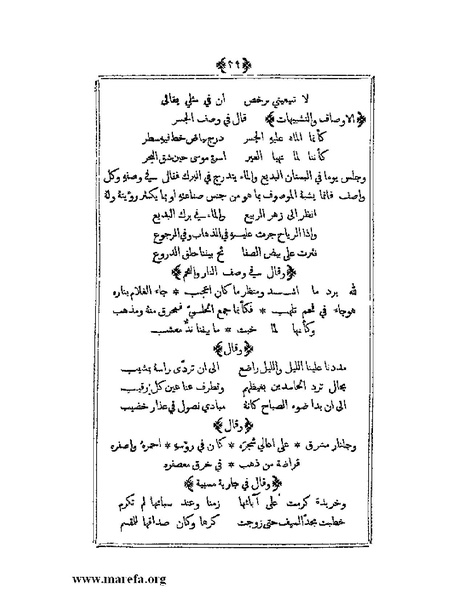 ﴿٢٩﴾
لا تبيعيني برخص ان في مثلي يغالى
﴿الاوصاف والتشبيهات﴾ قال في وصف الجسر
كأنما الماء عليه الجسر درج بياض خط فيه سطر
كأننا لما تهيا العبر اسرة موسى حين شق البحر
وجلس يوما في البستان البديع والماء يتدرج في البرك فقال في وصفه وكل
واصف فانما يشبه الموصوف بما هو من جنس صناعته او بما يكثر رؤيته له
انظر الى زهر الربيع والماء في برك البديع
واذا الرياح جرت عليه في الذهاب وفي الرجوع
نثرت على بيض الصفا ئح بيننا حلق الدروع
﴿وقال في وصف النار والفحم﴾
لله برد ما اشد ومنظر ما كان اعجب * جاء الغلام بناره
هوجاء في فحم تلهب * فكأنما جمع الحلي فمحرق منه ومذهب
وكأنها لما خبت * ما بيننا ند معشب
﴿وقال﴾
مددنا علينا الليل والليل راضع الى ان تردى راسه بمشيب
بحال ترد الحاسدين بغيظهم وتطرف عنا عين كل رقيب
الى ان بدا ضوء الصباح كانه مبادي نصول في عذار خضيب
﴿وقال﴾
وجلنار مشرق * على اعالي شجره * كان في رؤسه * احمره واصفره
قراضة من ذهب * في خرق معصفره
﴿وقال في جارية مسبية﴾
وخريدة كرمت على آبائها زمنا وعند سبائها لم تكرم
خطبت بحد السيف حتى زوجت كرها وكان صداقها للمقسم
www.marefa.org